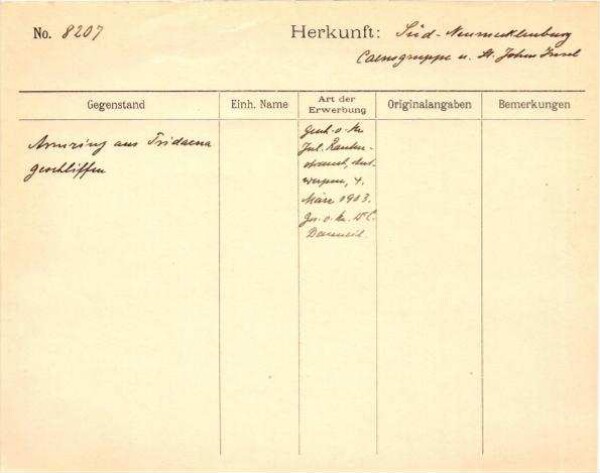 No. 8207
Herkunft: Süd-Neumecklenburg
Caensgruppe u. St. Johns Insel
Gegenstand
Einh. Name
Art der
Erwerbung
Originalangaben
Bemerkungen
Armring aus Tridacna
geschliffen
Gesch. v. Hr.
Jul. Rauten-
strauch, Ant-
werpen, 4.
März 1903.
Ges. v. Hr. Dr C.